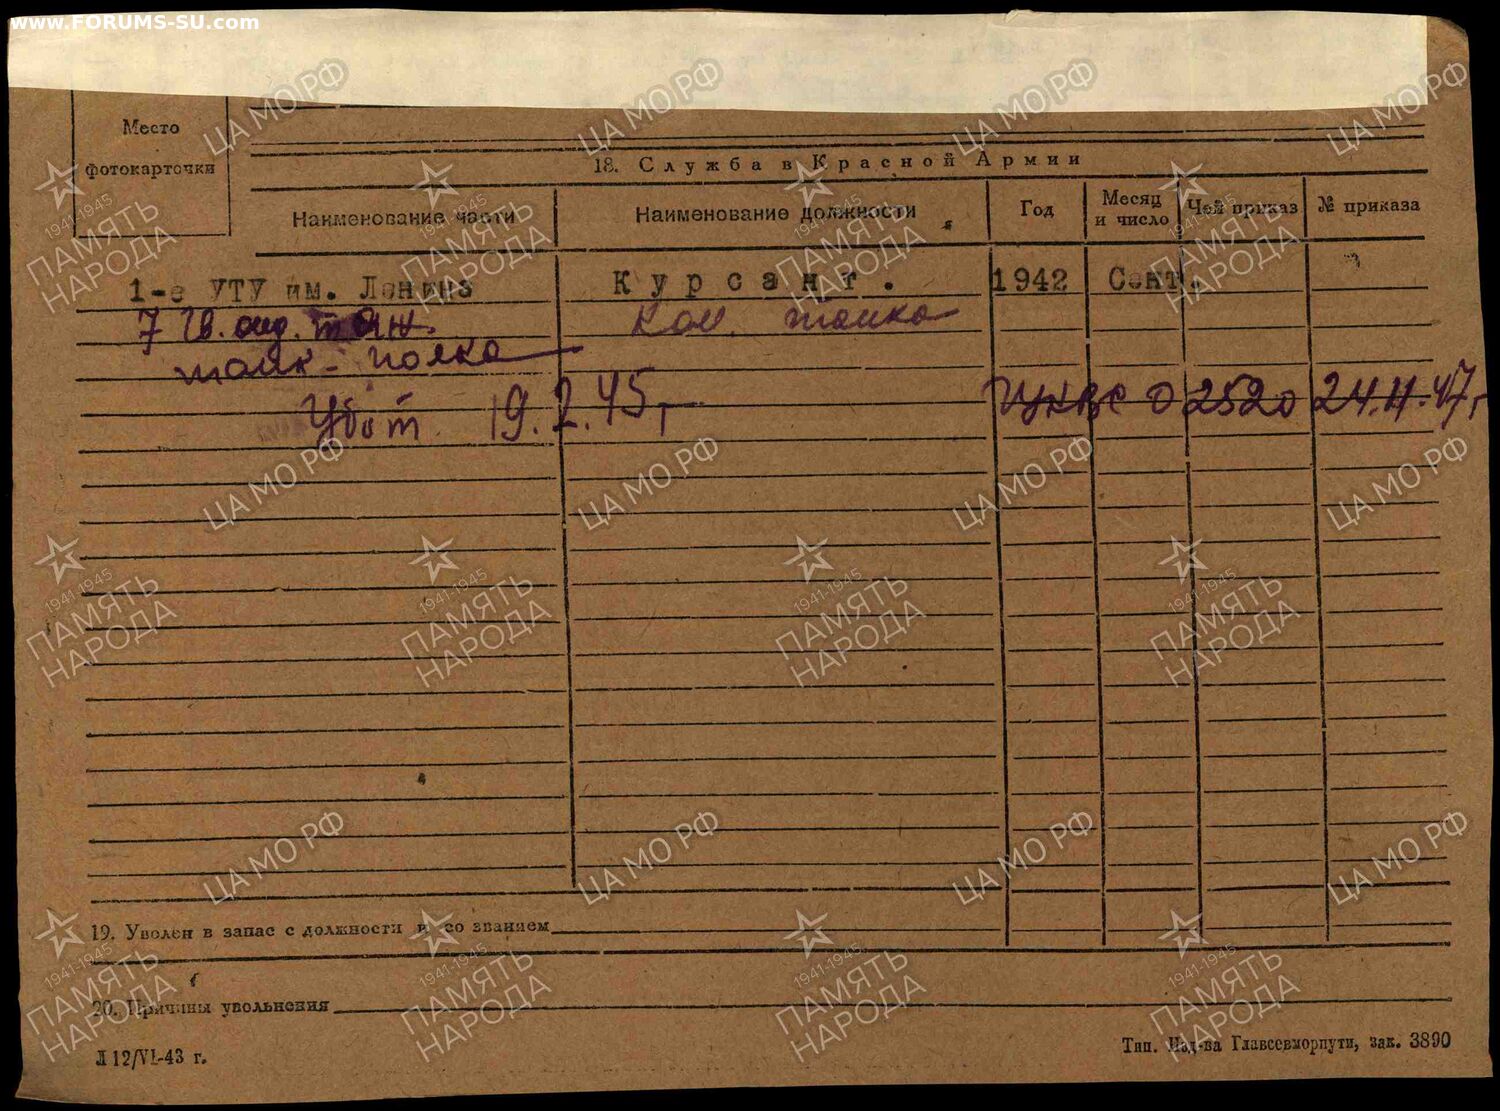 www.FORUMS-SU.com
Место
фотокарточки
18. Служба в Красной Армии
Наименование части
Наименование должности
Год
Месяц и число
Чей приказ
№ приказа
1-е УТУ им. Ленина
Курсант.
1942
Сент.
7 Гв. отд. тяж.
Ком. танка
танк. полка
Убит 19.2.45 г
ГУК ВС 02520 24.11.47 г
19. Уволен в запас с должности и со званием
20. Причины увольнения
Л 12/VI-43 г.
Тип. Изд-ва Главсевморпути, зак. 3890
ЦА МО РФ
1941-1945
ПАМЯТЬ
НАРОДА